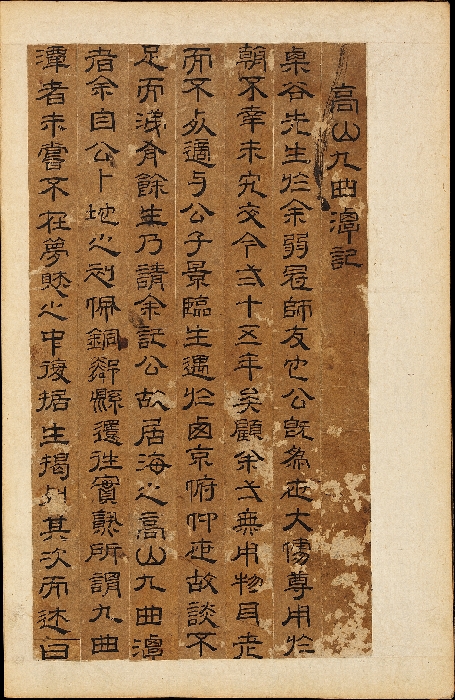 高山九曲潭記
栗谷先生於余弱冠師友也公旣為世大儒尊用於
朝不幸未究文今弍十五年矣顧余弍無用物且老
而不死適与公子景臨生遇於卤京俯仰世故談不
足而淚有餘生乃請余記公故居海之高山九曲潭
者余自公卜地之初佩銅鄰縣還往實熟所謂九曲
潭者未嘗不在夢寐之中復據生揭列其次而述曰